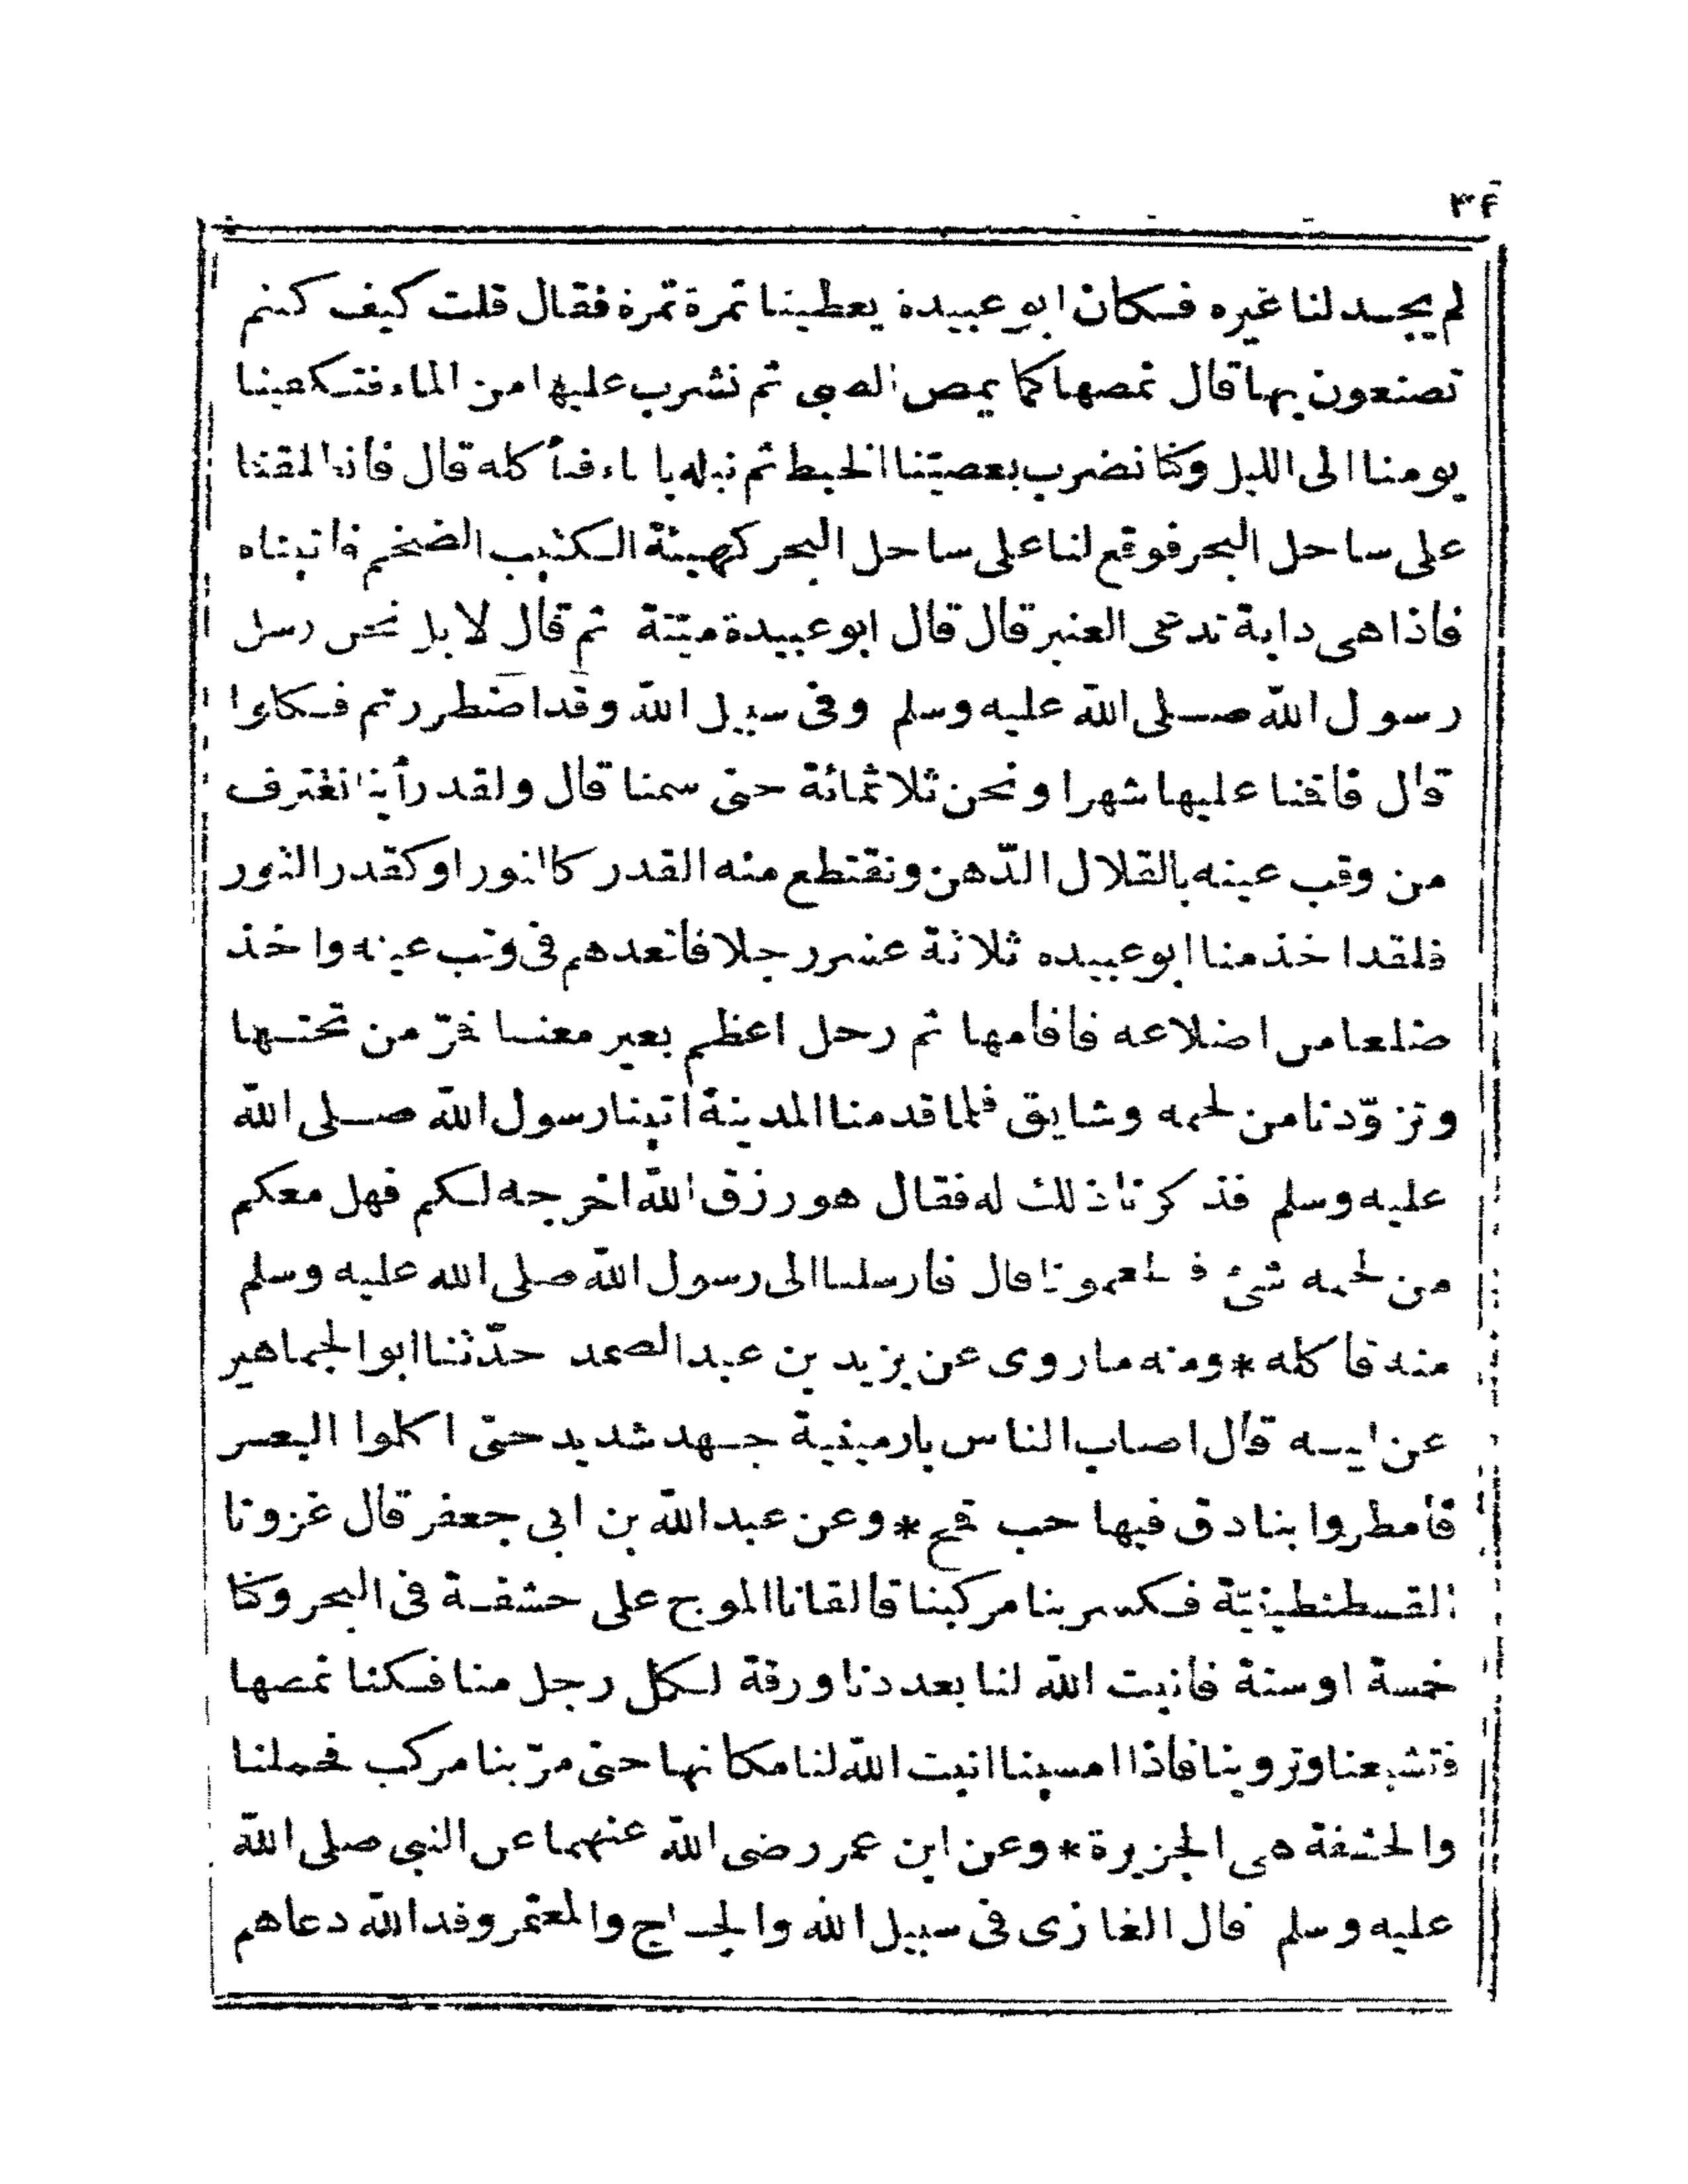 ٣٤
لم يجد لنا غيره فكان ابو عبيدة يعطينا تمرة تمرة فقال قلت كيف كنتم
تصنعون بها قال نمصها كما يمص الصبى ثم نشرب عليها من الماء فتكفينا
يومنا الى الليل وكنا نضرب بعصيّنا الخبط ثم نبله بالماء فنأكله قال فانطلقنا
على ساحل البحر فوقع لنا على ساحل البحر كهيئة الكثيب الضخم فاتيناه
فاذا هى دابة تدعى العنبر قال قال ابو عبيدة ميّتة ثم قال لا بل نحن رسل
رسول الله صلى الله عليه وسلم وفى سبيل الله وقد اضطررتم فكلوا
قال فاقمنا عليها شهرا ونحن ثلاثمائة حتى سمنا قال ولقد رأيتنا نغترف
من وقب عينه بالقلال الدّهن ونقتطع منه القدر كالثور او كقدر الثور
فلقد اخذ منا ابو عبيده ثلاثة عشر رجلا فاقعدهم فى وقب عينه واخذ
ضلعا من اضلاعه فاقامها ثم رحل اعظم بعير معنا فمرّ من تحتها
وتزوّدنا من لحمه وشايق فلما قدمنا المدينة اتينا رسول الله صلى الله
عليه وسلم فذكرنا ذلك له فقال هو رزق الله اخرجه لكم فهل معكم
من لحمه شئ فتطعمونا قال فارسلنا الى رسول الله صلى الله عليه وسلم
منه فاكله * ومنه ما روى عن يزيد بن عبد الصمد حدّثنا ابو الجماهير
عن ابيه قال اصاب الناس بارمينية جهد شديد حتى اكلوا البعر
فأمطروا بنادق فيها حب قمح * وعن عبد الله بن ابى جعفر قال غزونا
القسطنطينيّة فكسر بنا مركبنا فالقانا الموج على حشفة فى البحر وكنا
خمسة او ستة فانبت الله لنا بعددنا ورقة لكل رجل منا فكنا نمصها
فتشبعنا وتروينا فاذا امسينا انبت الله لنا مكانها حتى مرّ بنا مركب فحملنا
والحشفة هى الجزيرة * وعن ابن عمر رضى الله عنهما عن النبى صلى الله
عليه وسلم قال الغازى فى سبيل الله والحاج والمعتمر وفد الله دعاهم